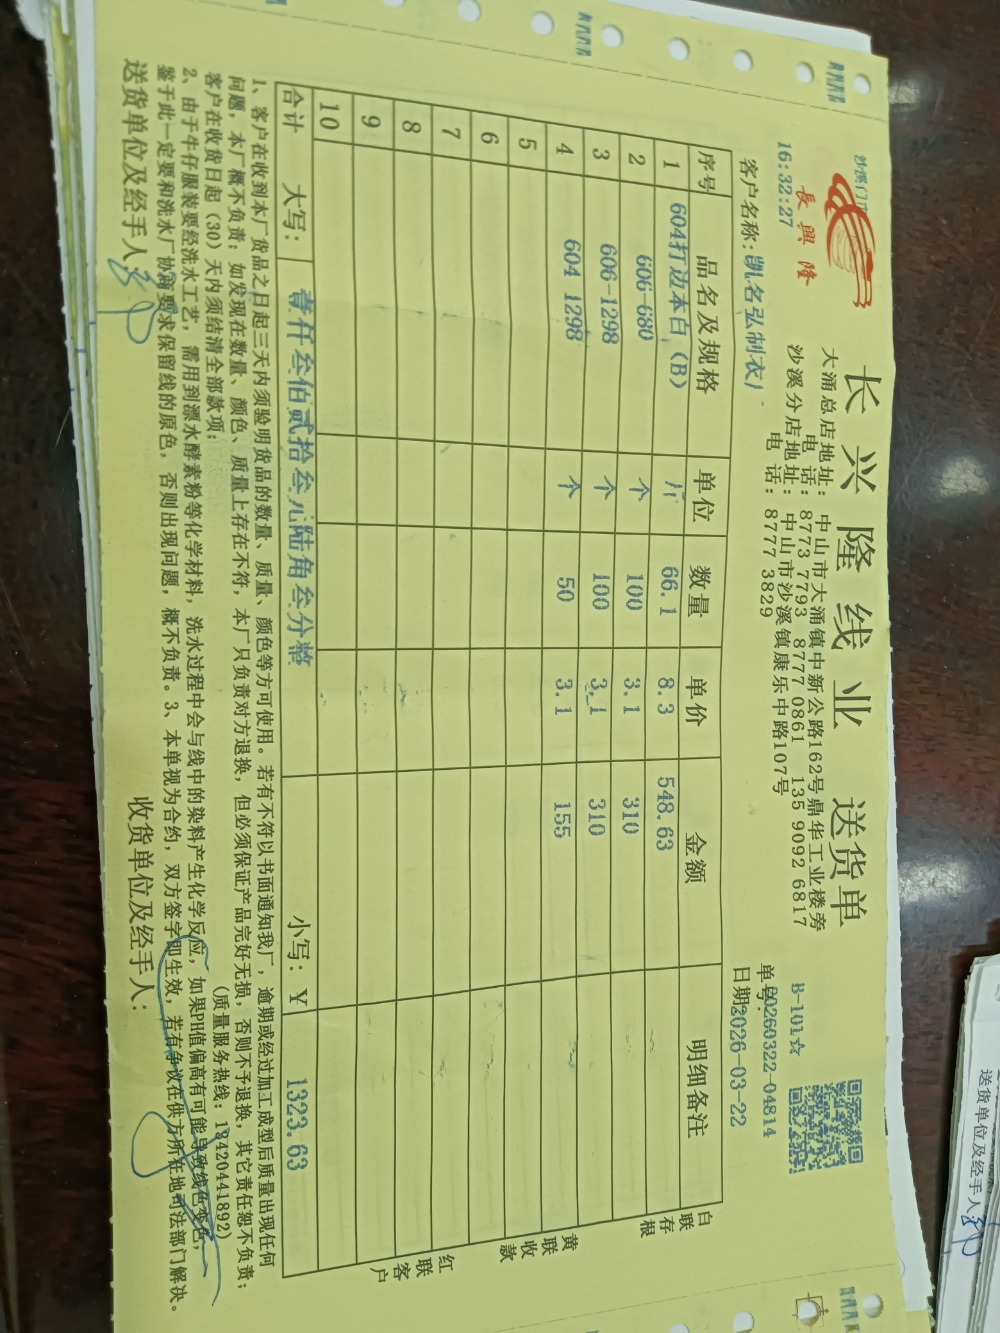 長興隆
长兴隆线业 送货单
大涌总店地址：中山市大涌镇中新公路162号鼎华工业楼旁
电 话：8773 7793 8777 0861 135 9092 6817
沙溪分店地址：中山市沙溪镇康乐中路107号
电 话：8777 3829
B-101☆
16:32:27
单号：20260322-04814
客户名称：凯名弘制衣厂
日期2026-03-22
序号 品名及规格 单位 数量 单价 金额 明细备注
1 604打边本白（B） 斤 66.1 8.3 548.63
2 606-680 个 100 3.1 310
3 606-1298 个 100 3.1 310
4 604 1298 个 50 3.1 155
5
6
7
8
9
10
合计 大写： 壹仟叁佰贰拾叁元陆角叁分整 小写：¥ 1323.63
白联存根
黄联收款
红联客户
1、客户在收到本厂货品之日起三天内须验明货品的数量、质量、颜色等方可使用。若有不符以书面通知我厂，逾期或经过加工成型后质量出现任何
问题，本厂概不负责；如发现在数量、颜色、质量上存在不符，本厂只负责对方退换，但必须保证产品完好无损，否则不予退换，其它责任恕不负责；
客户在收货日起（30）天内须结清全部款项； （质量服务热线：13420441892）
2、由于牛仔服装要经洗水工艺，需用到漂水酵素粉等化学材料，洗水过程中会与线中的染料产生化学反应，如果PH值偏高有可能导致线色变色，
鉴于此一定要和洗水厂协商要求保留线的原色，否则出现问题，概不负责。3、本单视为合约，双方签字即生效，若有争议在供方所在地司法部门解决。
送货单位及经手人： 收货单位及经手人：
送货单位及经手人